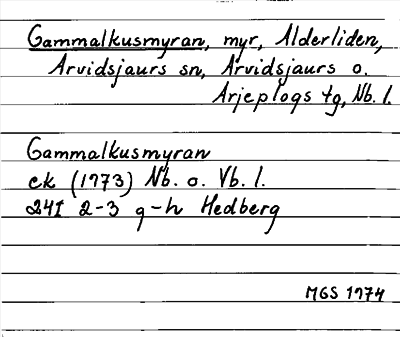 Gammalkusmyran, myr, Alderliden,
Arvidsjaurs sn, Arvidsjaurs o.
Arjeplogs tg, Nb. l.
Gammalkusmyran
ek (1973) Nb. o. Vb. l.
24I 2-3 g-h Hedberg
MGS 1974